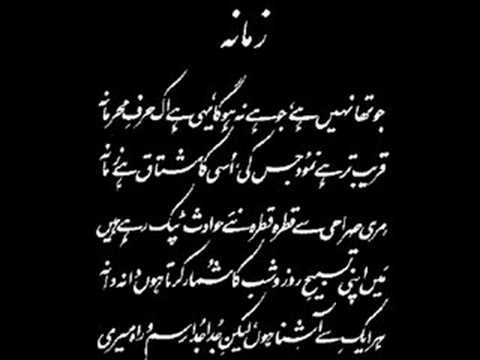 زمانہ
جو تھا نہیں ہے، جو ہے نہ ہوگا، یہی ہے اک حرفِ محرمانہ
قریب تر ہے نمود جس کی، اُسی کا مشتاق ہے زمانہ
مری صراحی سے قطرہ قطرہ نئے حوادث ٹپک رہے ہیں
میں اپنی تسبیحِ روز و شب کا شمار کرتا ہوں دانہ دانہ
ہر ایک سے آشنا ہوں لیکن جُدا جُدا رسم و راہ میری